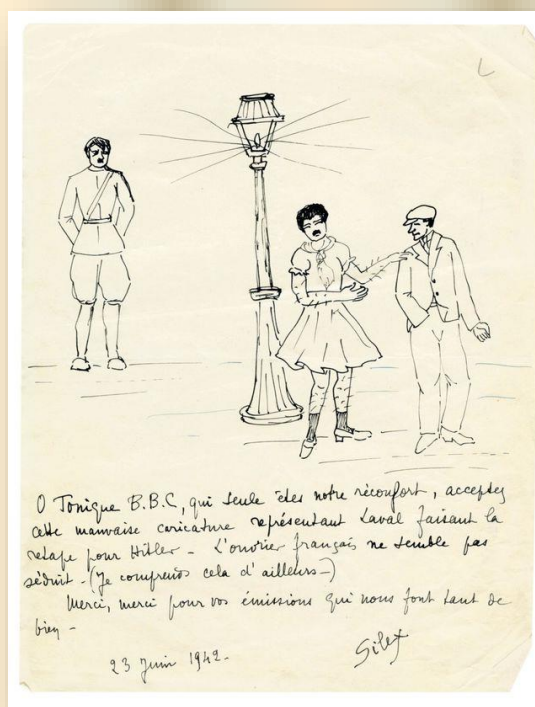 O Tonique B.B.C, qui seule êtes notre réconfort, acceptez
cette mauvaise caricature représentant Laval faisant la
retape pour Hitler - L'ouvrier français ne semble pas
séduit - (Je comprends cela d'ailleurs -)
Merci, merci pour vos émissions qui nous font tant de
bien -
23 Juin 1942 -
Silex